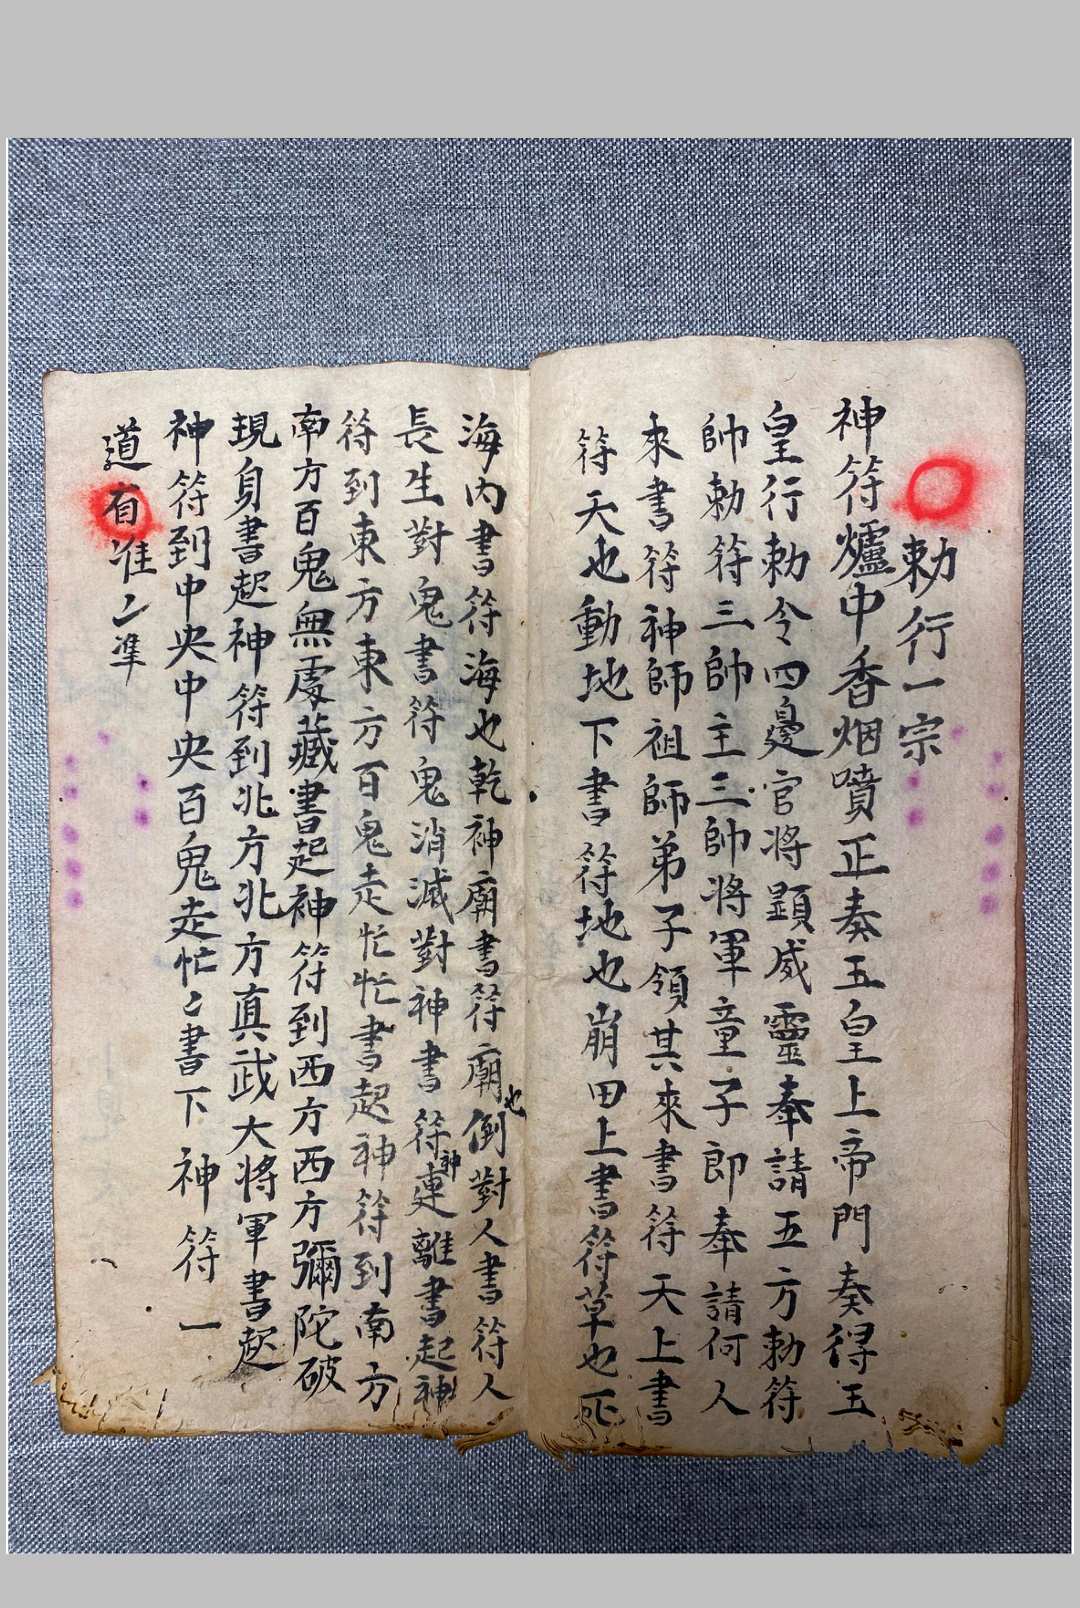 勅行一宗
神符爐中香烟噴正奏玉皇上帝門奏得玉
皇行勅令四邊官将顕威靈奉請五方勅符
帥勅符三帥主三帥将軍童子郎奉請何人
来書符神師祖師弟子領其來書符天上書
符天也動地下書符地也崩田上書符草也死
海内書符海也乾神廟書符廟也倒對人書符人
長生對鬼書符鬼消滅對神書符神連離書起神
符到東方東方百鬼走忙忙書起神符到南方
南方百鬼無處藏書起神符到西方西方彌陀破
現身書起神符到北方北方真武大将軍書起
神符到中央中央百鬼走忙〻書下神符一
道有准〻準